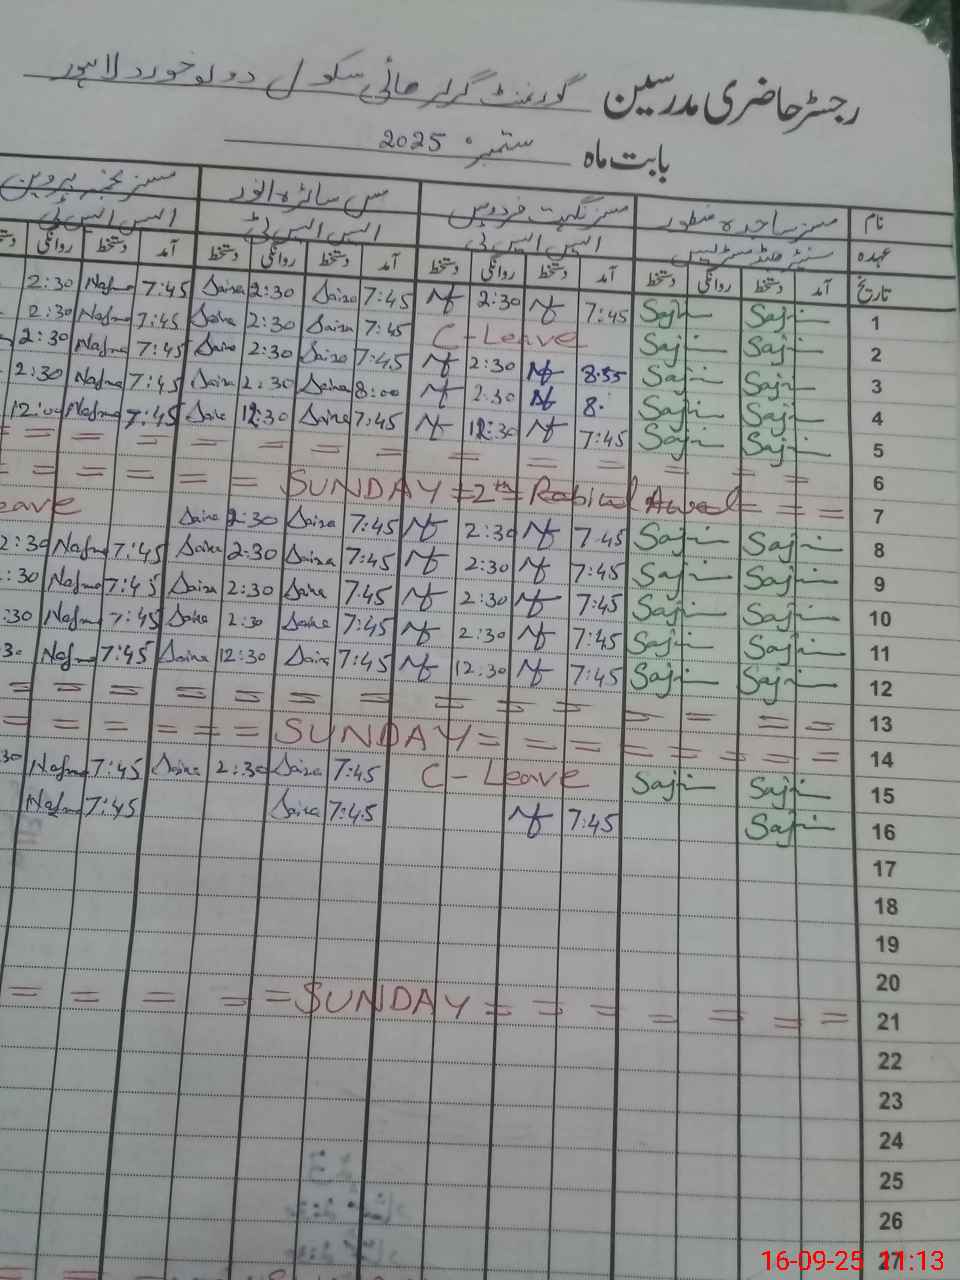 رجسٹر حاضری مدرسین گورنمنٹ گرلز ھائی سکول دولوخورد لاہور
بابت ماہ ستمبر 2025
نام مسز ساجدہ منظور مسز نگہت فردوس مس سائرہ انور مسز نجمہ پروین
عہدہ سنیئر ھیڈ مسٹریس ایس ایس ٹی ایس ایس ٹی ایس ایس ٹی
تاریخ آمد دستخط روانگی دستخط آمد دستخط روانگی دستخط آمد دستخط روانگی دستخط آمد دستخط روانگی
1 Saji Saji 7:45 Nf 2:30 Nf 7:45 Saira 2:30 Saira 7:45 Najma 2:30
2 Saji Saji C-Leave 7:45 Saira 2:30 Saira 7:45 Najma 2:30
3 Saji Saji 8:55 Nf 2:30 Nf 7:45 Saira 2:30 Saira 7:45 Najma 2:30
4 Saji Saji 8: Nf 2:30 Nf 8:00 Saira 2:30 Saira 7:45 Najma 2:30
5 Saji Saji 7:45 Nf 12:30 Nf 7:45 Saira 12:30 Saira 7:45 Najma 12:00
6 = = = = = = = = = =
= = = = = SUNDAY = 12th Rabiul Awal = = = 7
8 Saji Saji 7:45 Nf 2:30 Nf 7:45 Saira 2:30 Saira eave
9 Saji Saji 7:45 Nf 2:30 Nf 7:45 Saira 2:30 Saira 7:45 Najma 2:30
10 Saji Saji 7:45 Nf 2:30 Nf 7:45 Saira 2:30 Saira 7:45 Najma :30
11 Saji Saji 7:45 Nf 2:30 Nf 7:45 Saira 2:30 Saira 7:45 Najma :30
12 Saji Saji 7:45 Nf 12:30 Nf 7:45 Saira 12:30 Saira 7:45 Najma 30
13 = = = = = = = = = = = =
= = = = = = SUNDAY = = = = = = = = 14
15 Saji Saji C-Leave 7:45 Saira 2:30 Saira 7:45 Najma 30
16 Saji 7:45 Nf 7:45 Saira 7:45 Najma
17
18
19
20
= = = = = SUNDAY = = = = = = = 21
22
23
24
25
26
27
16-09-25 11:13